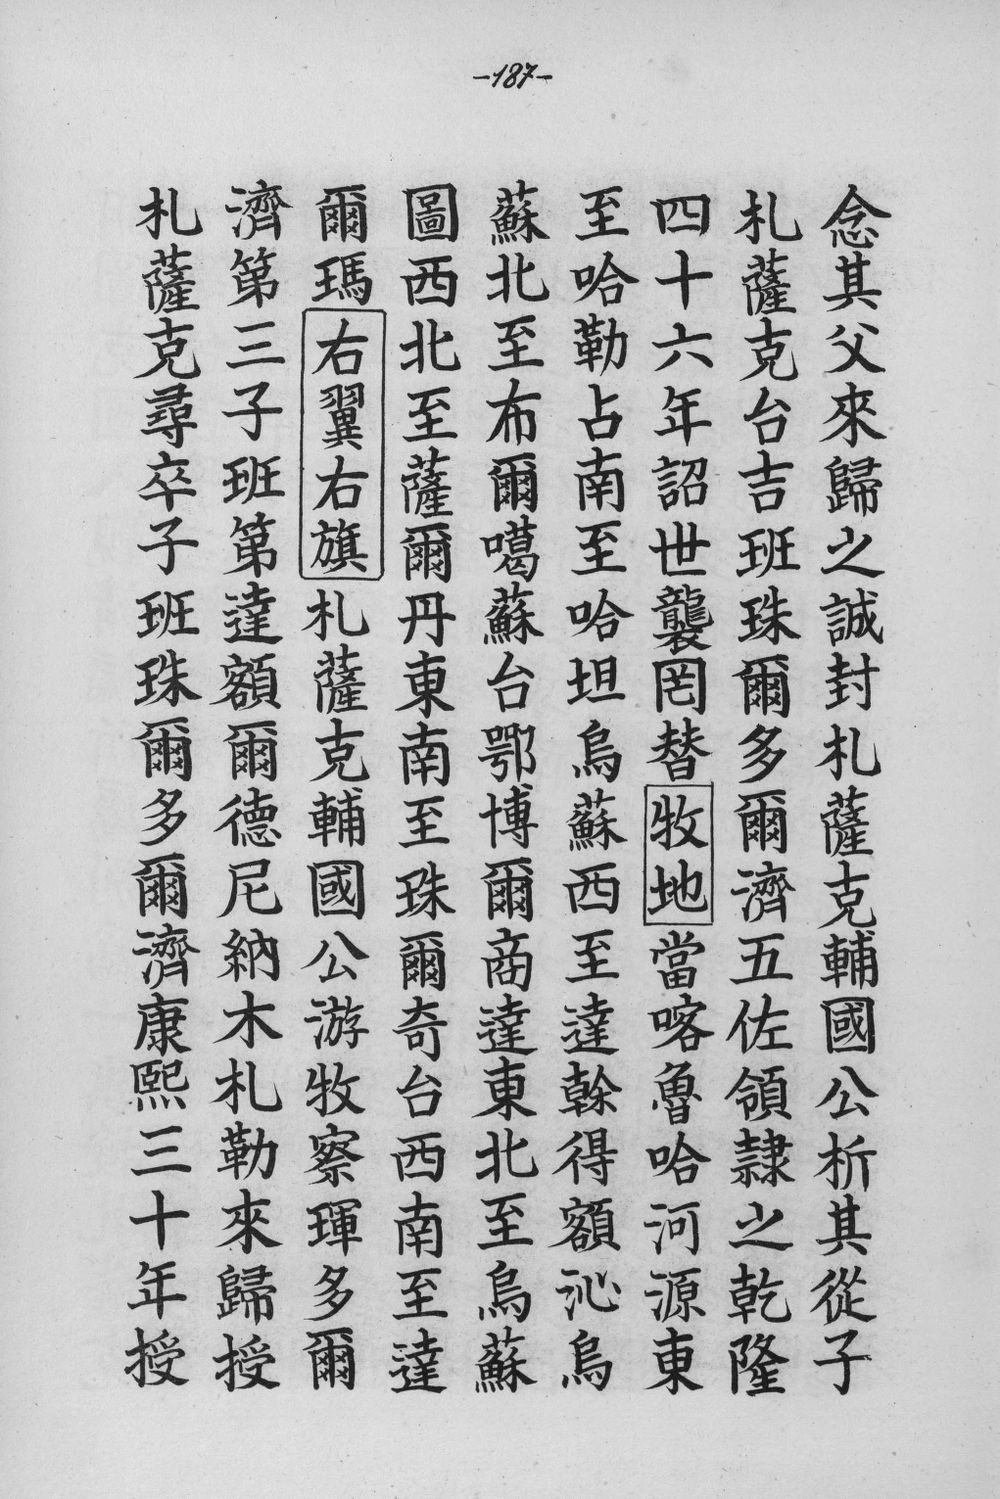 -187-
念其父來歸之誠封札薩克輔國公析其從子
札薩克台吉班珠爾多爾濟五佐領隷之乾隆
四十六年詔世襲罔替牧地當喀魯哈河源東
至哈勒占南至哈坦烏蘇西至達幹得額沁烏
蘇北至布爾噶蘇台鄂博爾商達東北至烏蘇
圖西北至薩爾丹東南至珠爾奇台西南至達
爾瑪右翼右旗札薩克輔國公游牧察琿多爾
濟第三子班第達額爾德尼納木札勒來歸授
札薩克尋卒子班珠爾多爾濟康熙三十年授